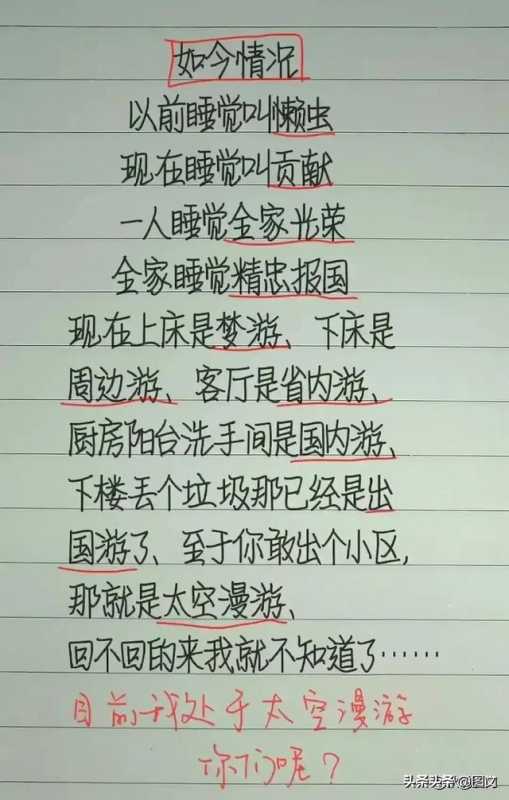 如今情况
以前睡觉叫懒虫
现在睡觉叫贡献
一人睡觉全家光荣
全家睡觉精忠报国
现在上床是梦游、下床是
周边游、客厅是省内游、
厨房阳台洗手间是国内游、
下楼丢个垃圾那已经是出
国游了、至于你敢出个小区,
那就是太空漫游、
回不回的来我就不知道了……
目前我处于太空漫游
你们呢?
头条头条 @图文